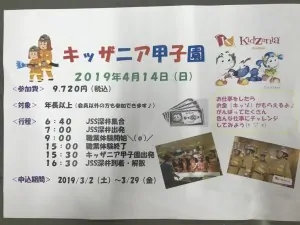 キッザニア甲子園
KidZania
2019年4月14日（日）
＜参加費＞ 9,720円（税込）
＜対象＞ 年長以上（会員以外の方も参加できます♪）
＜行程＞ 6：40 JSS深井集合
7：00 JSS深井出発
9：00 職業体験開始＼(^o^)／
15：00 職業体験終了
15：30 キッザニア甲子園出発
16：30 JSS深井到着・解散
お仕事をしたら
お金（キッゾ）がもらえるよ♪
がんばってたくさん
色んな仕事にチャレンジ
してみよう
＜申込期間＞ 2019/3/2（土）～3/29（金）